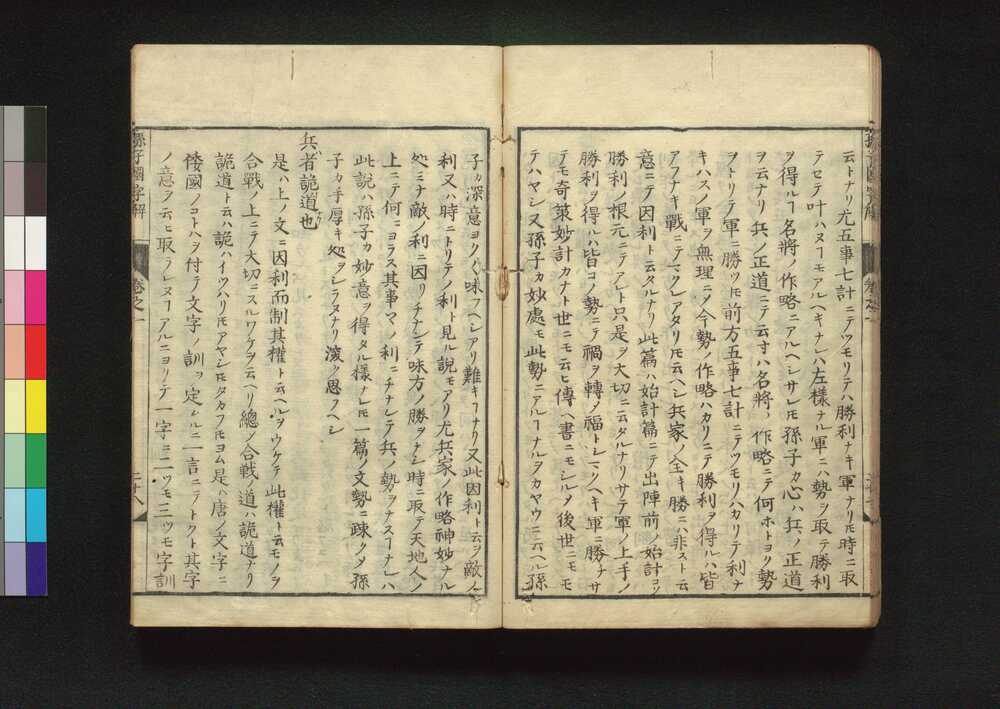 云トナリ尤五事七計ニテツモリテハ勝利ナキ軍ナリ𪜈時ニ取
テセテ叶ハヌヿモアルヘキナレハ左様ナル軍ニハ勢ヲ取テ勝利
ヲ得ルヿ名將ノ作略ニアルヘシサレ𪜈孫子カ心ハ兵ノ正道
ヲ云ナリ兵ノ正道ニテ云寸ハ名將ノ作略ニテ何ホトヨク勢
ヲトリテ軍ニ勝ツ𪜈前方五事七計ニテツモリハカリテ利ナ
キハスノ軍ヲ無理ニ乄今勢ノ作略ハカリニテ勝利ヲ得ルハ皆
アフナキ戰ニテマクレアタリ𪜈云ヘシ兵家ノ全キ勝ニハ非スト云
意ニテ因利ト云タルナリ此篇ハ始計篇ニテ出陣前ノ始計コソ
勝利ノ根元ニテアレト只是ヲ大切ニ云タルナリサテ軍ノ上手ノ
勝利ヲ得ルハ皆コノ勢ニテ禍ヲ轉乄福トシマクヘキ軍ニ勝ナサ
テモ奇策妙計カナト世ニモ云ヒ傳ヘ書ニモシルメ後世ニモモ
テハヤシ又孫子カ妙處モ此勢ニアルヿナルヲカヤウニ云ヘル孫
子カ深意ヨク〱味フヘシアリ難キヿナリ又此因利ト云ヲ敵ノ
利又ハ時ニトリテノ利ト見ル說モアリ尤兵家ノ作略神妙ナル
処ミナ敵ノ利ニ因リチナンテ味方ノ勝ヲナシ時ニ取テ天地人ノ
上ニテ何ニヨラス其事マノ利ニチナレテ兵ノ勢ヲナスヿナレハ
此說ハ孫子カ妙意ヲ得タル樣ナレ𪜈一篇ノ文勢ニ疎ク乄孫
子カ手厚キ処ヲシラヌナリ深ク思フヘシ
兵者詭道也
是ハ上ノ文ニ因利而制其權ト云ヘルヲウケテ此權ト云モノヲ
合戰ノ上ニテ大切ニスルワケヲ云ヘリ總乄合戰ノ道ハ詭道ナリ
詭道ト云ハ詭ハイツハリ𪜈アヤシ𪜈タカフ𪜈ヨム是ハ唐ノ文字ニ
倭國ノコトハヲ付テ文字ノ訓ヲ定ムルニ一言ニテトクト其字
ノ意ヲ云ヒ取ラレヌヿアルニヨリテ一字ニ二ツモ三ツモ字訓
孫子國字解
卷之一
孫子國字解
卷之一